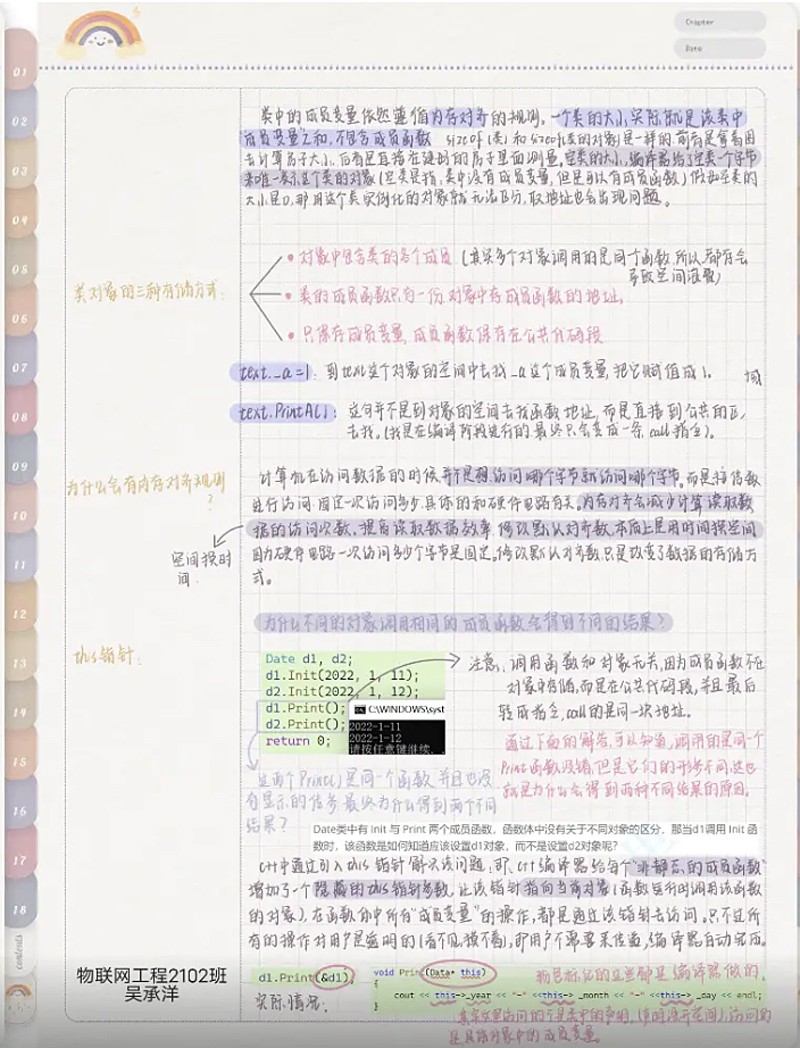 Chapter
Date
01
02
03
04
05
06
07
08
09
10
11
12
13
14
15
16
17
18
contents
类中的成员变量依然遵循内存对齐的规则，一个类的大小，实际就是该类中
"成员变量"之和，不包含成员函数 sizeof(类)和sizeof(类的对象)是一样的,前者是拿着图
去计算房子大小，后者是直接在建好的房子里面测量。空类的大小，编译器给了空类一个字节
来唯一表示这个类的对象(空类是指，类中没有成员变量，但是可以有成员函数) 假如空类的
大小是0，那用这个类实例化的对象就无法区分，取地址也会出现问题。
类对象的三种存储方式：
• 对象中包含类的各个成员 (其实多个对象调用的是同一个函数，所以都存会
导致空间浪费)
• 类的成员函数只有一份，对象中存成员函数的地址。
• 只保存成员变量，成员函数保存在公共代码段
text._a=1： 到text这个对象的空间中去找_a这个成员变量，把它赋值成1。 域
text.PrintA()： 这句并不是到对象的空间去找函数地址，而是直接到公共的区
去找。(我是在编译阶段进行的,最终只会变成一条call指令)。
为什么会有内存对齐规则
？
计算机在访问数据的时候并不是想访问哪个字节就访问哪个字节。而是按倍数
进行访问，固定一次访问多少，具体的和硬件电路有关。内存对齐会减少计算读取数
据的访问次数，提高读取数据效率，修改默认对齐数，本质上是用时间换空间
因为硬件电路一次访问多少个字节是固定。修改默认对齐数，只是改变了数据的存储方
式。
空间换时
间
为什么不同的对象调用相同的成员函数会得到不同的结果？
this指针：
Date d1, d2;
d1.Init(2022, 1, 11);
d2.Init(2022, 1, 12);
d1.Print();
d2.Print();
return 0;
C:\WINDOWS\syst
2022-1-11
2022-1-12
请按任意键继续. .
注意，调用函数和对象无关，因为成员函数不在
对象中存储，而是在公共代码段，并且最后
转成指令，call的是同一块地址。
通过下面的解答，可以知道，调用的是同一个
Print函数没错，但是它们的形参不同，这也
就是为什么会得到两种不同结果的原因。
这两个Print()是同一个函数，并且也没
有显示的传参，最终为什么得到两个不同
结果？
Date类中有 Init 与 Print 两个成员函数，函数体中没有关于不同对象的区分，那当d1调用 Init 函
数时，该函数是如何知道应该设置d1对象，而不是设置d2对象呢？
C++中通过引入this指针解决该问题，即：C++编译器给每个"非静态的成员函数"
增加了一个隐藏的this指针参数，让该指针指向当前对象(函数运行时调用该函数
的对象)，在函数体中所有"成员变量"的操作，都是通过该指针去访问。只不过所
有的操作对用户是透明的(看不见,摸不着)，即用户不需要来传递，编译器自动完成。
物联网工程2102班
吴承洋
d1.Print(&d1);
实际情况：
void Print(Data* this)
{
cout << this->_year << "-" <<this-> _month << "-" <<this-> _day << endl;
}
粉色标记的这些都是编译器做的.
其实这里访问的不是类中的声明，(声明没开空间)，访问的
是具体对象中的成员变量。